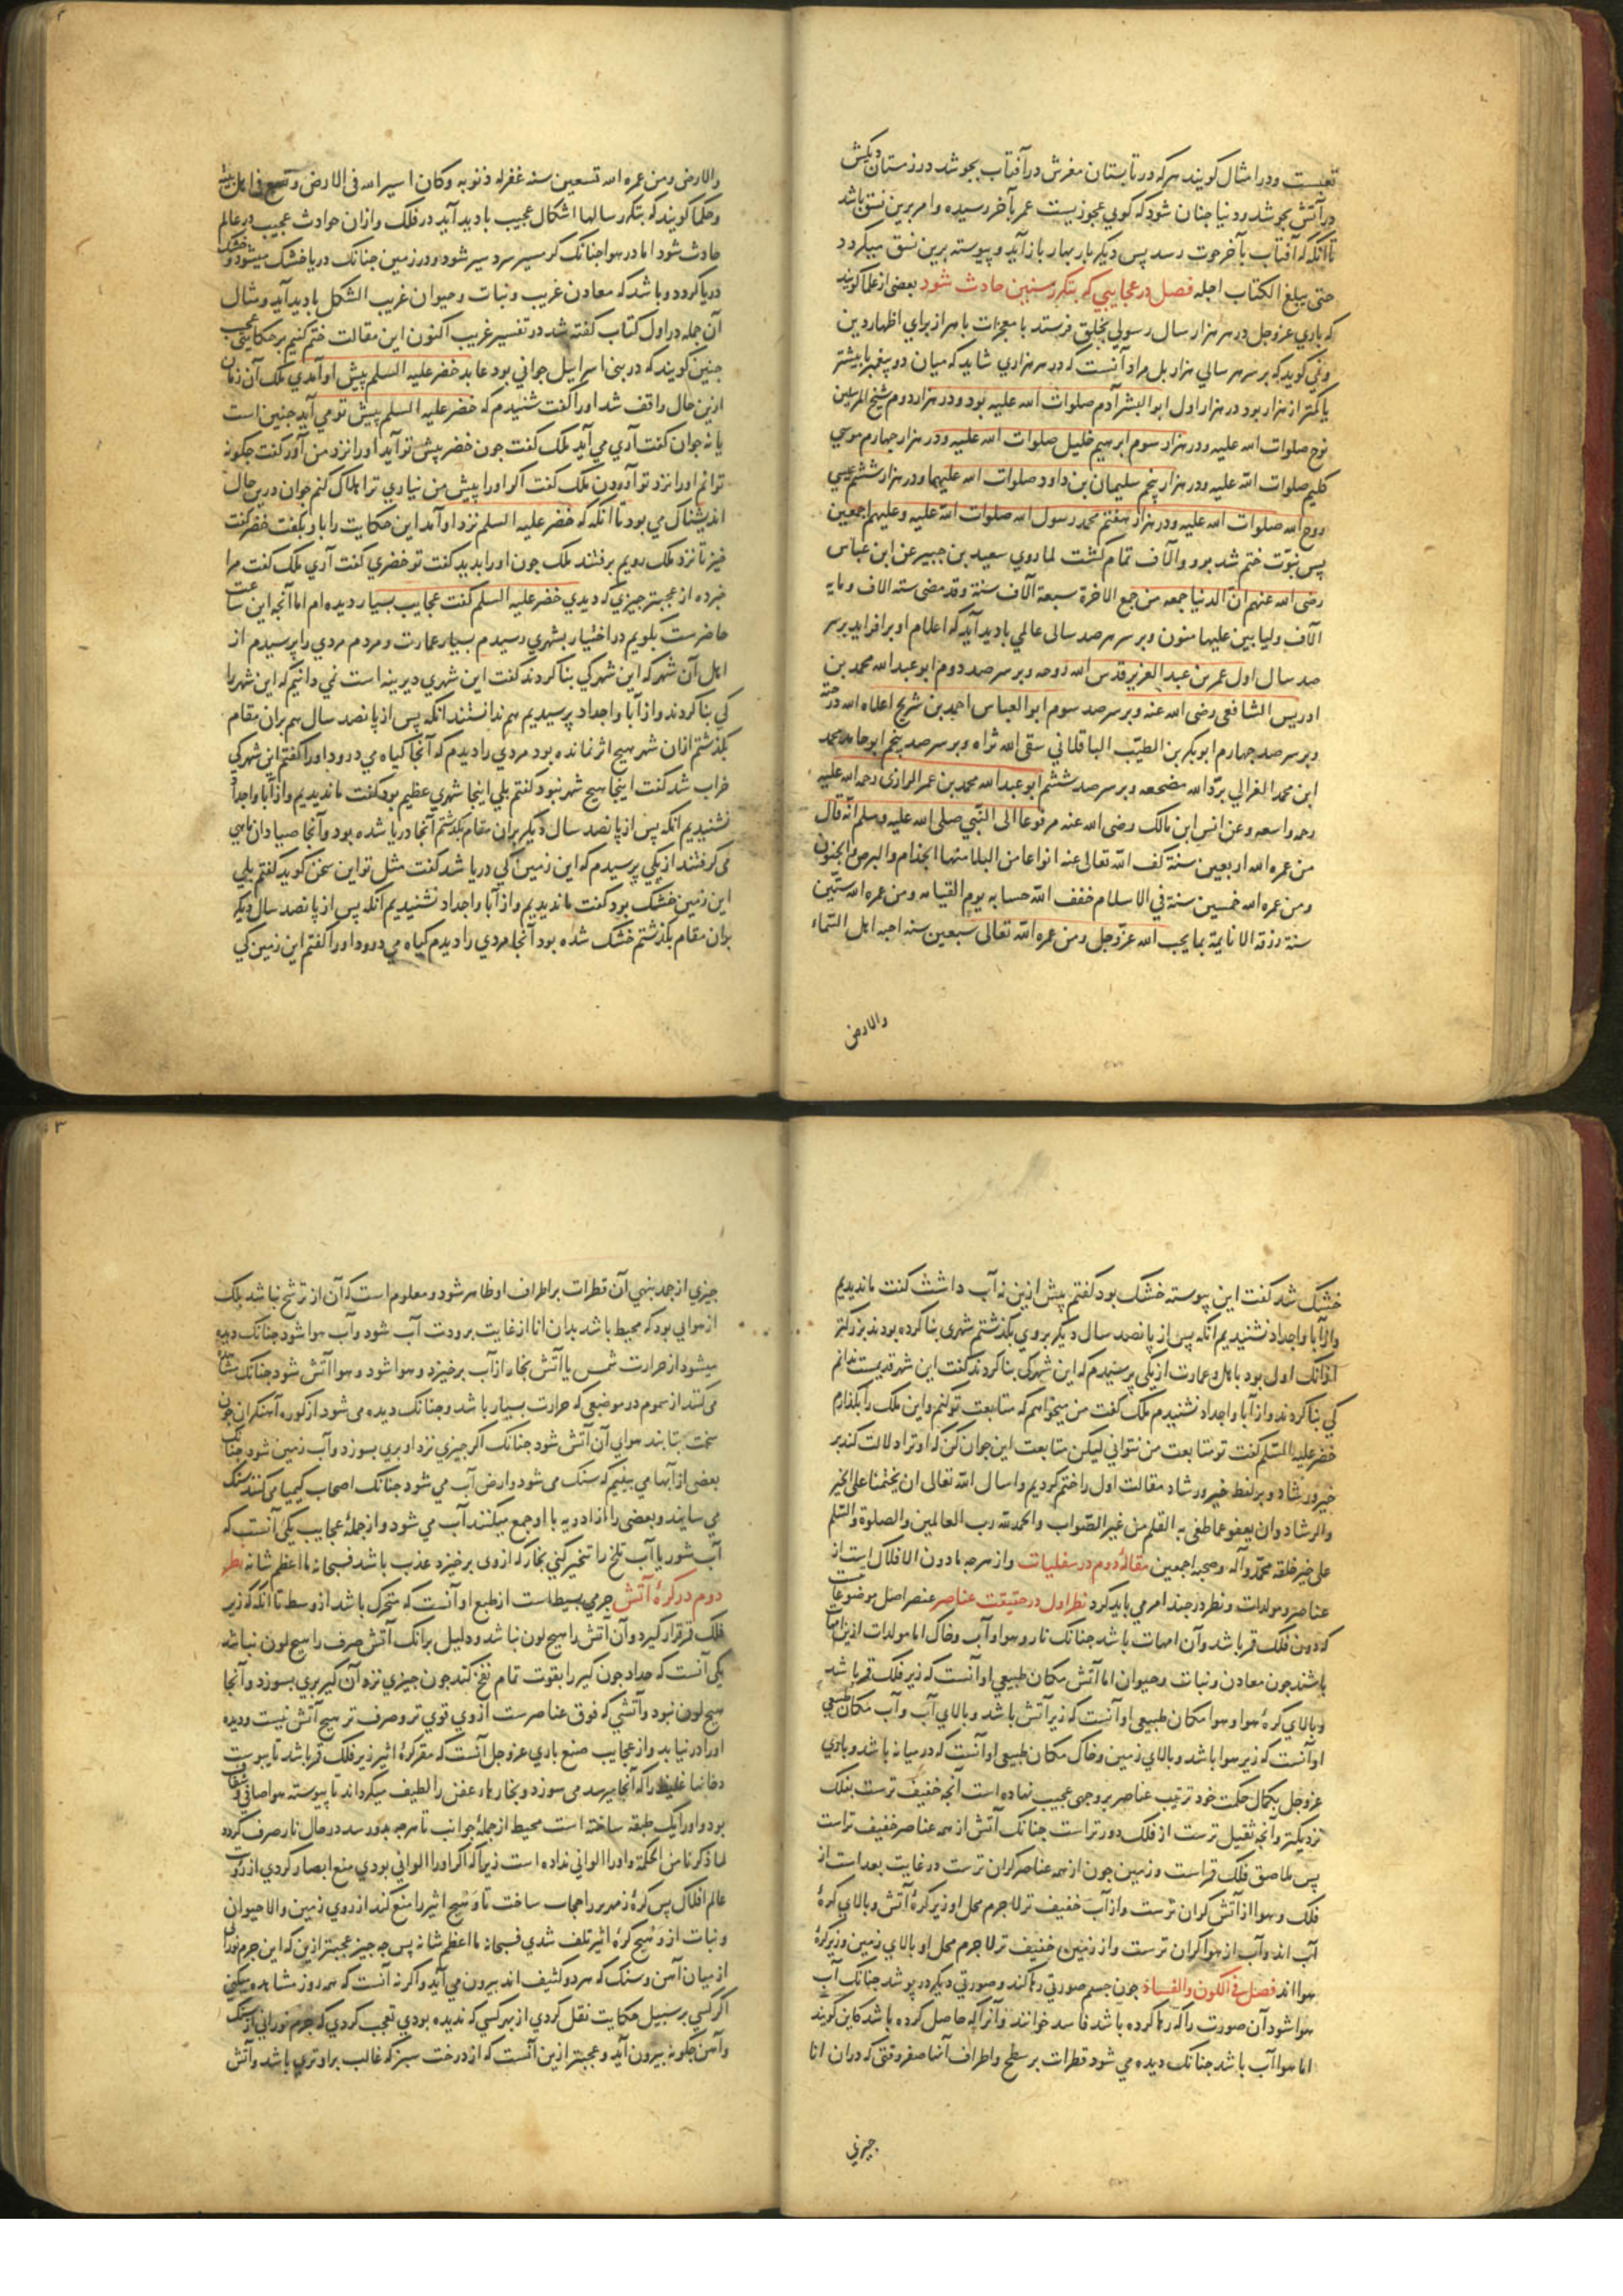 تعبست ودر امثال کویند هرکه در تابستان مغزش در آفتاب بجوشد در زمستان دیکش
در آتش بجوشد ودنیا چنان شود که کویی عجوزیست عمر بآخر رسیده وامر برین نسق باشد
تا آنکه که آفتاب بآخر حوت رسد پس دیکر بار بهار باز آید وپیوسته برین نسق میکردد
حتی یبلغ الکتاب اجله فصل در عجایبی که بتکرر سنین حادث شود بعضی از علما کویند
که باری عزوجل در هر هزار سال رسولی بخلق فرستد با معجزات باهر از برای اظهار دین
ونمی کوید که بر سر هر سالی هزار بل مراد آنست که در هر هزاری شاید که میان دو پیغمبر یا بیشتر
یا کمتر از هزار بود در هزار اول ابو البشر آدم صلوات الله علیه بود ودر هزار دوم شیخ المرسلین
نوح صلوات الله علیه ودر هزار سوم ابرهیم خلیل صلوات الله علیه ودر هزار چهارم موسی
کلیم صلوات الله علیه ودر هزار پنجم سلیمان بن داود صلوات الله علیهما ودر هزار ششم عیسی
روح الله صلوات الله علیه ودر هزار هفتم محمد رسول الله صلوات الله علیه وعلیهم اجمعین
پس نبوّت ختم شد بدو والآف تمام کشت لما روی سعید بن جبیر عن ابن عباس
رضی الله عنهم ان الدنیا جمعه من جمع الاخرة سبعة آلاف سنة وقد مضی سته الاف ومایه
الآف ولیا بین علیها منون وبر سر هر صد سالی عالمی بادید آید که اعلام او برافرازد بر سر
صد سال اول عمر بن عبد العزیز قدس الله روحه وبر سر صد دوم ابو عبد الله محمد بن
ادریس الشافعی رضی الله عنه وبر سر صد سوم ابو العباس احمد بن شریح اعلاه الله درجته
وبر سر صد چهارم ابو بکر بن الطیّب الباقلانی سقی الله ثراه وبر سر صد پنجم ابو حامد محمد
ابن محمد الغزالی برّد الله مضجعه وبر سر صد ششم ابو عبد الله محمد بن عمر الرازی رحمه الله علیه
رحمه واسعه وعن انس ابن مالک رضی الله عنه مرفوعا الی النّبی صلی الله علیه وسلم انه قال
من عمره الله اربعین سنة کف الله تعالی عنه انواعا من البلا منها الجذام والبرص والجنون
ومن عمره الله خمسین سنة فی الاسلام خفف الله حسابه یوم القیامه ومن عمره الله ستّین
سنة رزقه الانابة بما یحب الله عزّوجل ومن عمره الله تعالی سبعین سنه احبه اهل السّماء
والارض
والارض ومن عمره الله تسعین سنه غفر له ذنوبه وکان اسیر الله فی الارض وتشفع فی اهل بیته
وحکما کویند که بتکرر سالها اشکال عجیب بادید آید در فلک وازان حوادث عجیب در عالم
حادث شود اما در هوا چنانک کرمسیر سردسیر شود ودر زمین چنانک دریا خشک میشود وخشک
دریا کردد وباشد که معادن غریب ونبات وحیوان غریب الشکل بادید آید ومثال
آن جمله در اول کتاب کفته شد در تفسیر غریب اکنون این مقالت ختم کنیم بر حکایتی عجیب
چنین کویند که در بنی اسراییل جوانی بود عابد خضر علیه السلم پیش او آمدی ملک آن زمان
ازین حال واقف شد اورا کفت شنیدم که خضر علیه السلم پیش تو می آید چنین است
یا نه جوان کفت آری می آید ملک کفت چون خضر پیش تو آید اورا نزد من آور کفت چکونه
توانم اورا نزد تو آوردن ملک کفت اکر اورا پیش من نیاری ترا هلاک کنم جوان درین حال
اندیشناک می بود تا آنکه که خضر علیه السلم نزد او آمد این حکایت را با او بکفت خضر کفت
خیز تا نزد ملک رویم برفتند ملک چون اورا بدید کفت تو خضری کفت آری ملک کفت مرا
خبر ده از عجبتر چیزی که دیدی خضر علیه السلم کفت عجایب بسیار دیده ام اما آنچه این ساعت
حاضرست بکویم در اختیار بشهری رسیدم بسیار عمارت ومردم مردی را پرسیدم از
اهل آن شهر که این شهر کی بنا کردند کفت این شهری دیرینه است نمی دانیم که این شهر را
کی بنا کردند واز آبا واجداد پرسیدیم هم ندانستند آنکه پس از پانصد سال هم بران مقام
بکذشتم ازان شهر هیچ اثر نمانده بود مردی را دیدم که آنجا کیاه می درود اورا کفتم این شهر کی
خراب شد کفت اینجا هیچ شهر نبود کفتم بلی اینجا شهری عظیم بود کفت ما ندیدیم واز آبا واجداد
نشنیدیم آنکه پس از پانصد سال دیکر بران مقام بکذشتم آنجا دریا شده بود وآنجا صیادان ماهی
می کرفتند از یکی پرسیدم که این زمین کی دریا شد کفت مثل تو این سخن کوید کفتم بلی
این زمین خشک بود کفت ما ندیدیم واز آبا واجداد نشنیدیم آنکه پس از پانصد سال دیکر
بران مقام بکذشتم خشک شده بود آنجا مردی را دیدم کیاه می درود اورا کفتم این زمین کی
۳
خشک شد کفت این پیوسته خشک بود کفتم پیش ازین نه آب داشت کفت ما ندیدیم
واز آبا واجداد نشنیدیم آنکه پس از پانصد سال دیکر بروی بکذشتم شهری بنا کرده بودند بزرکتر
ازانک اول بود با اهل وعمارت از یکی پرسیدم که این شهر کی بنا کردند کفت این شهر قدیمست ندانم
کی بنا کردند واز آبا واجداد نشنیدم ملک کفت من میخواهم که متابعت تو کنم واین ملک را بکذارم
خضر علیه السّلم کفت تو متابعت من نتوانی لیکن متابعت این جوان کن که او ترا دلالت کند بر
خیر ورشاد وبر لفظ خیر ورشاد مقالت اول را ختم کردیم واسال الله تعالی ان یختمنا علی الخیر
والرشاد وان یعفو عما طغی به القلم من غیر الصّواب والحمد لله رب العالمین والصلوة والسّلم
علی خیر خلقه محمّد وآله وصحبه اجمعین مقالهٔ دوم در سفلیات واز هرچه مادون الافلاک است از
عناصر ومولدات ونظر در چند امر می باید کرد نظر اول در حقیقت عناصر عنصر اصل موضوعات
که دون فلک قمر باشد وآن امهات باشد چنانک نار وهوا وآب وخاک اما مولدات ازین امهات
باشند چون معادن ونبات وحیوان اما آتش مکان طبیعی او آنست که زیر فلک قمر باشد
وبالای کرهٔ هوا وهوا مکان طبیعی او آنست که زیر آتش باشد وبالای آب وآب مکان طبیعی
او آنست که زیر هوا باشد وبالای زمین وخاک مکان طبیعی او آنست که در میانه باشد وباری
عزوجل بکمال حکمت خود ترتیب عناصر بر وجهی عجیب نهاده است آنچه خفیف ترست بفلک
نزدیکتر وآنچه ثقیل ترست از فلک دورتر است چنانک آتش از همه عناصر خفیف تر است
پس ملاصق فلک قمر است وزمین چون از همه عناصر کران ترست در غایت بعد است از
فلک وهوا از آتش کران ترست واز آب خفیف تر لاجرم محل او زیر کرهٔ آتش وبالای کرهٔ
آب اند وآب از هوا کران ترست واز زمین خفیف تر لاجرم محل او بالای زمین وزیر کرهٔ
هوا اند فصل فی الکون والفساد چون جسم صورتی رها کند وصورتی دیکر در پوشد چنانک آب
هوا شود آن صورت را که رها کرده باشد فاسد خوانند وآنرا که حاصل کرده باشد کاین کویند
اما هوا آب باشد چنانک دیده می شود قطرات بر سطح واطراف آنیا صفر وقتی که دران انا
چیزی
چیزی از جمد بنهی آن قطرات بر اطراف او ظاهر شود ومعلوم است که آن از ترشح نباشد بلک
از هوایی بود که محیط باشد بدان انا از غایت برودت آب شود وآب هوا شود چنانک دیده
میشود از حرارت شمس یا آتش بخار از آب برخیزد وهوا شود وهوا آتش شود چنانک مشاهده
می کنند از سموم در موضعی که حرارت بسیار باشد وچنانک دیده می شود از کوره آهنکران چون
سخت بتابند هوای آن آتش شود چنانک اکر چیزی نزد او بری بسوزد وآب زمین شود چنانک
بعضی از آبها می بینیم که سنک می شود وارض آب می شود چنانک اصحاب کیمیا می کنند سنک
می سایند وبعضی را از ادویه با او جمع میکنند آب می شود واز جملهٔ عجایب یکی آنست که
آب شور یا آب تلخ را تبخیر کنی بخار که از وی برخیزد عذب باشد فسبحانه ما اعظم شانه نظر
دوم در کرهٔ آتش جرمی بسیط است از طبع او آنست که متحرک باشد از وسط تا آنکه که زیر
فلک قمر قرار کیرد وآن آتش را هیچ لون نباشد ودلیل برانک آتش صرف را هیچ لون نباشد
یکی آنست که حداد چون کیر را بقوت تمام نفخ کند چون چیزی نزد آن کیر بری بسوزد وآنجا
هیچ لون نبود وآتشی که فوق عناصرست ازوی قوی تر وصرف تر هیچ آتش نیست ودیده
اورا در نیابد واز عجایب صنع باری عزوجل آنست که مقر کرهٔ اثیر زیر فلک قمر باشد تا یبوست
دخانها غلیظ را که آنجا میرسد می سوزد وبخارهاء عفن را لطیف میکرداند تا پیوسته هوا صافی وشفاف
بود واورا یک طبقه ساخته است محیط از جملهٔ جوانب تا هرچه بدو رسد در حال نار صرف کردد
لما ذکرنا من الحکمة واورا الوانی نداده است زیرا که اکر اورا الوانی بودی منع ابصار کردی از رویت
عالم افلاک پس کرهٔ زمهریر را حجاب ساخت تا وهیج اثیر را منع کند از روی زمین والا حیوان
ونبات از وهیج کرهٔ اثیر تلف شدی فسبحانه ما اعظم شانه پس چه چیز عجبتر ازین که این جرم نورانی
از میان آهن وسنک که هر دو کثیف اند بیرون می آید واکر نه آنست که هر روز مشاهده میکنی
اکر کسی بر سبیل حکایت نقل کردی از بهر کسی که ندیده بودی تعجب کردی که جرم نورانی از سنک
وآهن چکونه بیرون آید وعجبتر ازین آنست که از درخت سبز که غالب بر او تری باشد وآتش